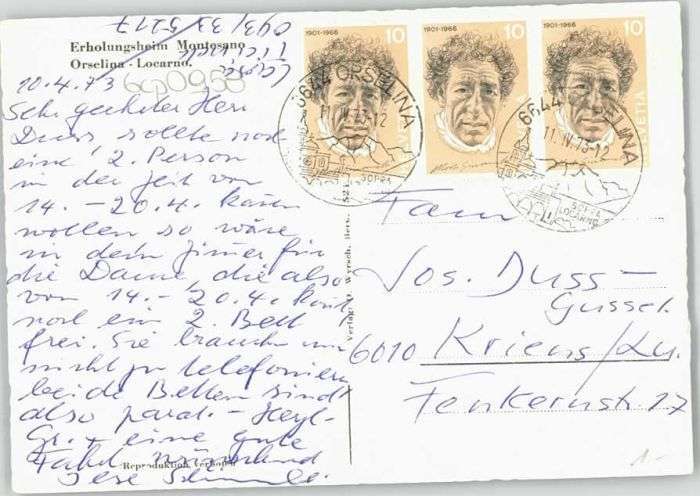 Erholungsheim Montesano
Orselina - Locarno.
093/33 52 17
10.4.73
Sehr geehrter Herr
Duss, sollte noch
eine 2. Person
in der Zeit von
14. - 20.4. kommen
wollen so wäre
in dem Zimmer für
die Dame, die also
von 14. - 20.4. kommt
noch ein 2. Bett
frei. Sie brauchen mir
nicht zu telefonieren
beide Betten sind
also parat. - Herzl.
Gr. + eine gute
Fahrt wünschend
Reproduktion verboten
1901-1966 10
1901-1966 10
1901-1966 10
HELVETIA
6644 ORSELINA
11.IV.73-12
SOPRA
6644 ORSELINA
11.IV.73-12
SOPRA
LOCARNO
Fam
Jos. Duss-
Gussel.
6010 Kriens/Lu.
Fenkernstr. 17
1.-